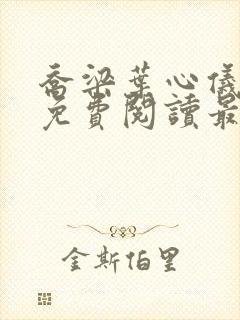 喬梁葉心儀
免費閱讀最
金斯伯里